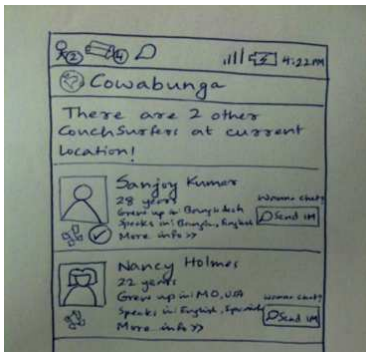 2 4 4:22PM
Cowabunga
There are 2 other
CouchSurfers at current
location!
Sanjoy Kumar
28 years
Grew up in: Bangladesh
Speaks in: Bangla, English
More info >>
Wanna chat?
Send IM
Nancy Holmes
22 years
Grew up in: MO, USA
Speaks in: English, Spanish
More info >>
Wanna chat?
Send IM